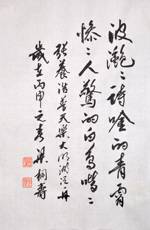 波灔〻詩唫的青霄
惨〻人驚的白鳥皚〻
張養浩普天樂大明湖泛舟
歲在丙申之春梁